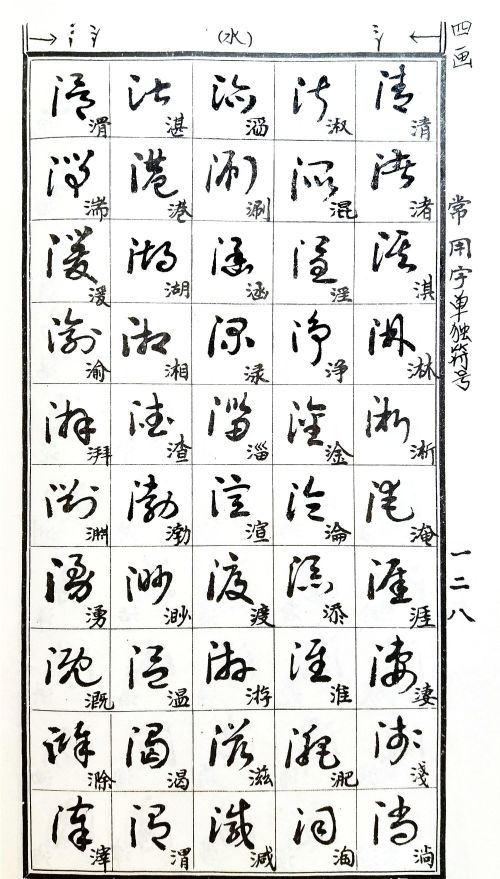 四画
常用字单独符号
一二八
(水)
清渚淇淋淅淹涯淒淺淌
淑混淫淨淦淪添淮淝淘
涮涵渌淄渲渡游滋減
湛港湖湘渣渤渺温渴渭
湍湲渝湃淵湧溉滁滓